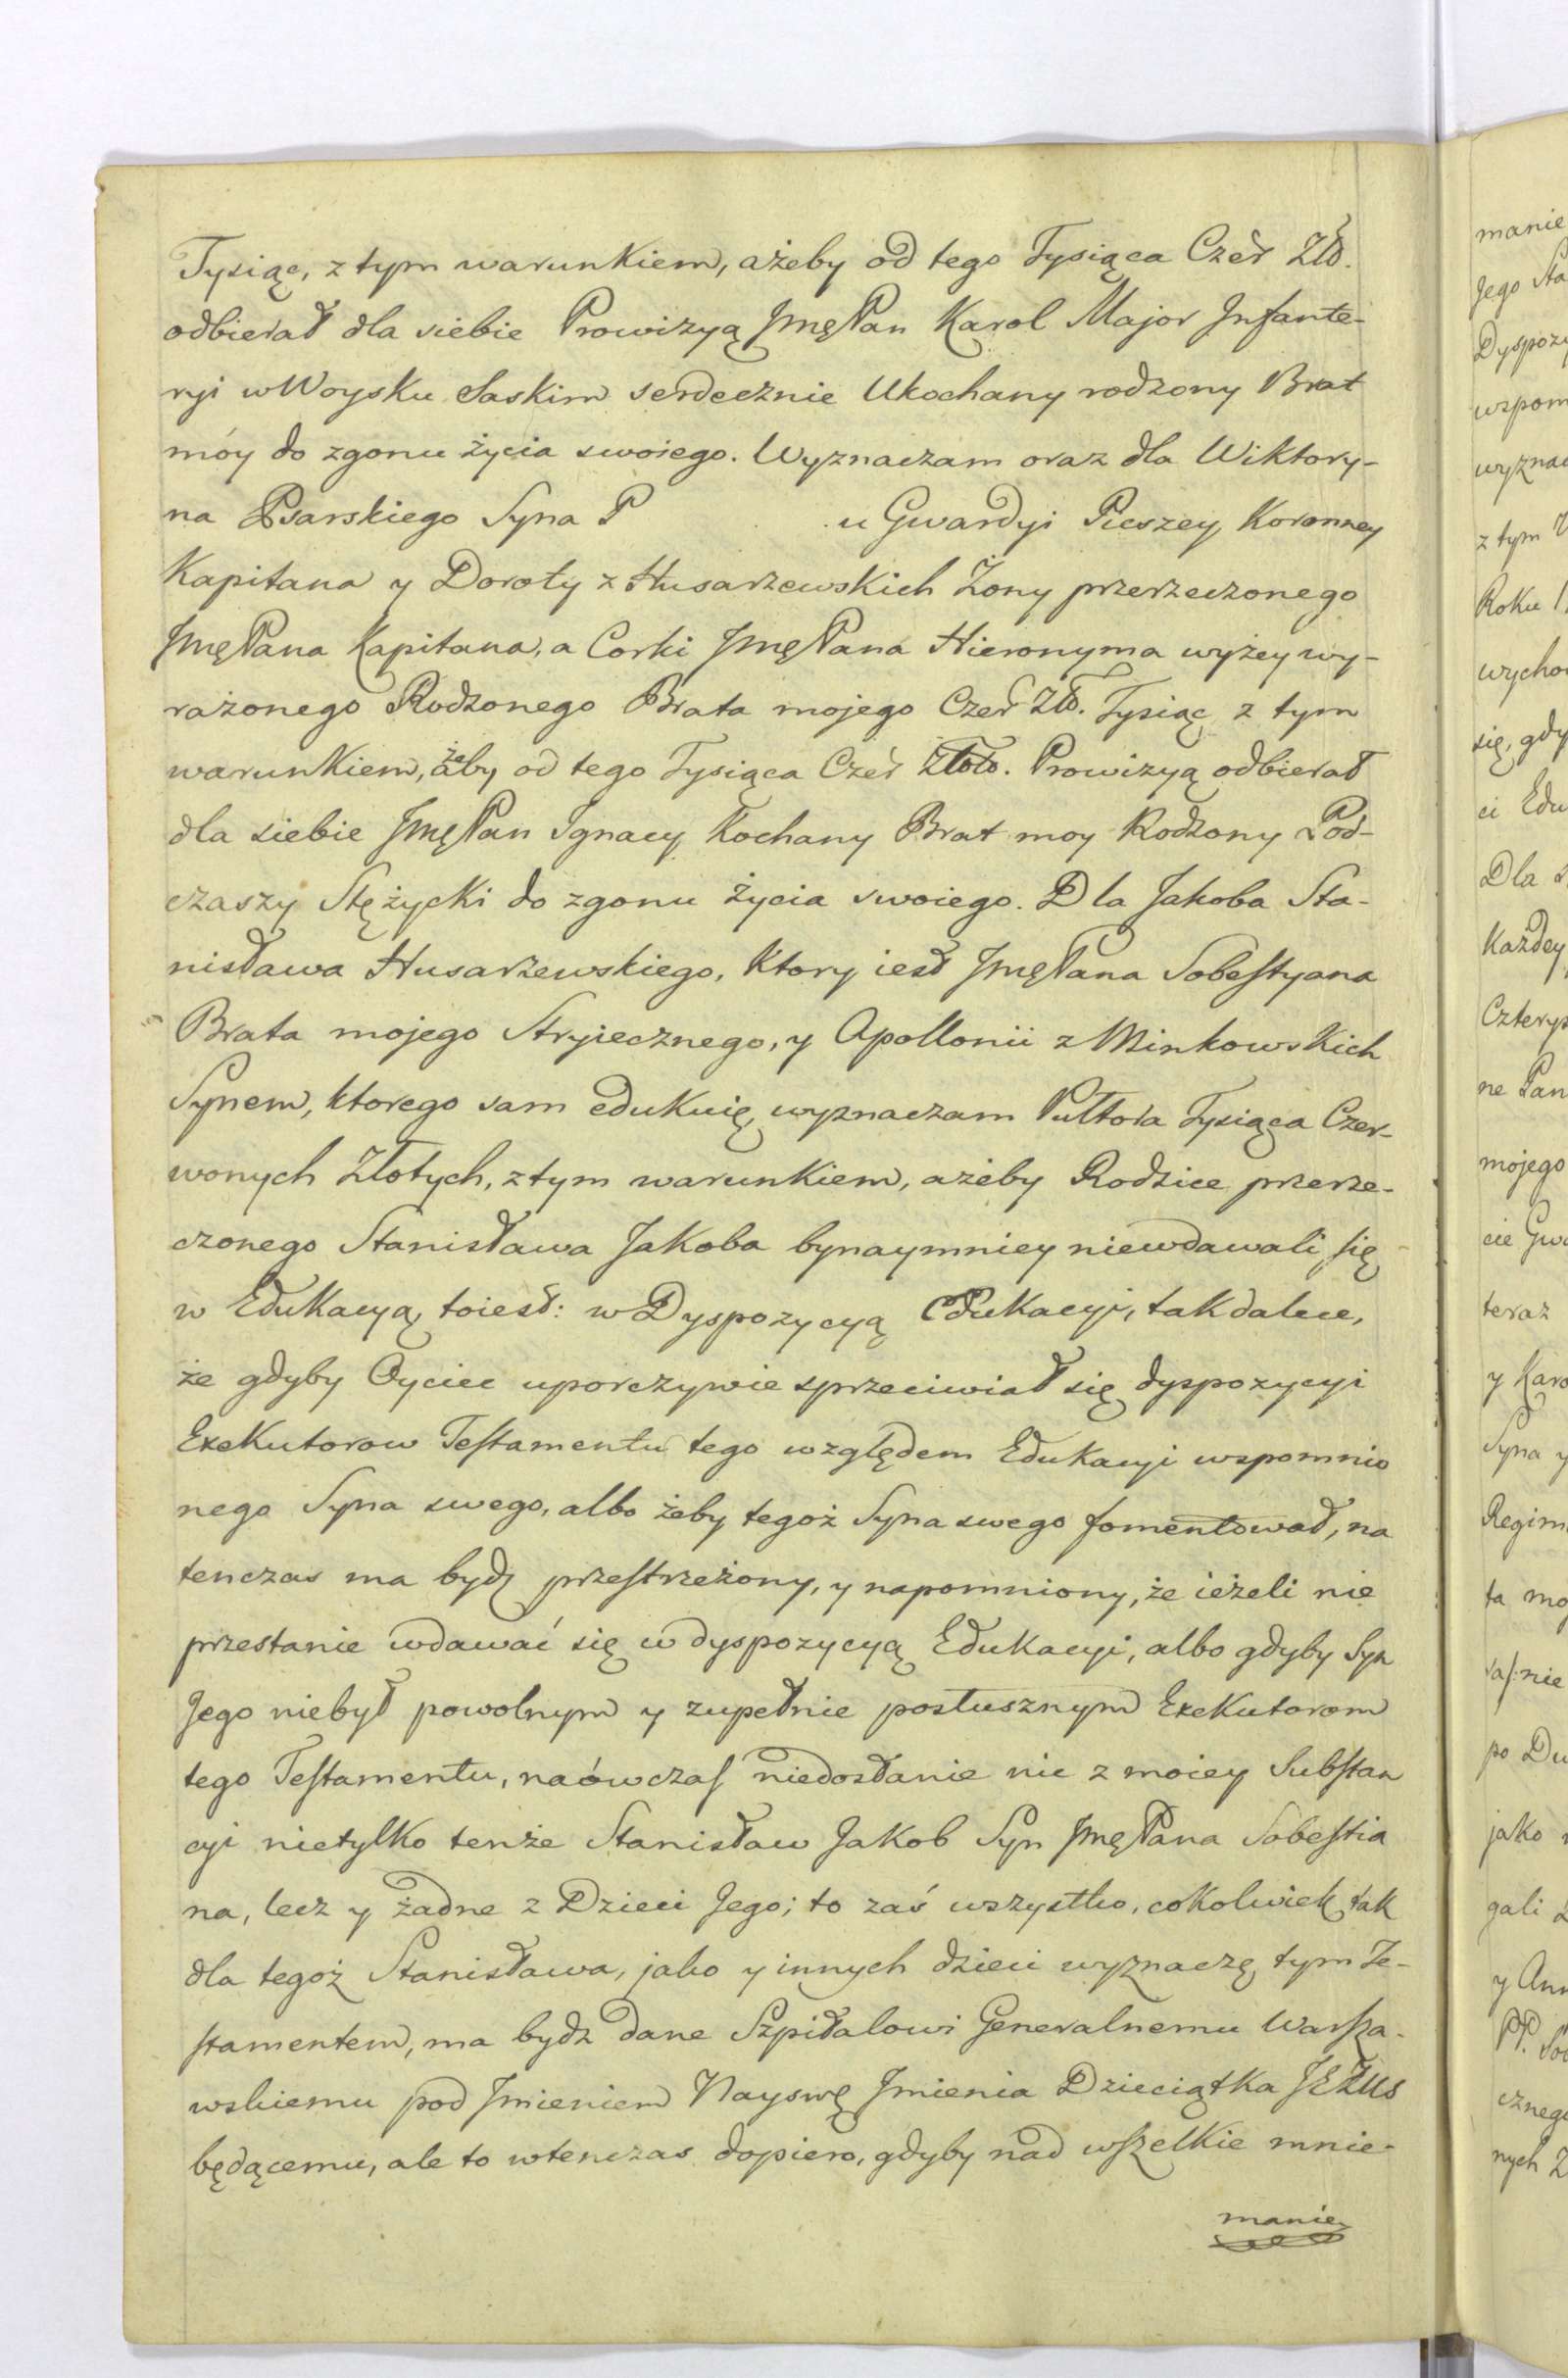 Tysiąc, z tym warunkiem, ażeby od tego Tysiąca Czer Złł.
odbierał dla siebie Prowizyą JmęPan Karol Major Jnfante-
ryi w Woysku Saskim serdecznie Ukochany rodzony Brat
móy do zgonu życia swoiego. Wyznaczam oraz dla Wiktory-
na Psarskiego Syna P u Gwardyi Pieszey Koronney
Kapitana y Doroty z Husarzewskich Żony przerzeczonego
JmęPana Kapitana, a Corki JmęPana Hieronyma wyżey wy-
rażonego Rodzonego Brata mojego Czer Złł. Tysiąc z tym
warunkiem, ażeby od tego Tysiąca Czer Złoto. Prowizyą odbierał
dla siebie JmęPan Jgnacy Kochany Brat moy Rodzony Pod-
czaszy Stężycki do zgonu życia swoiego. Dla Jakoba Sta-
nisława Husarzewskiego, ktory iest JmęPana Sobestyana
Brata mojego Stryiecznego, y Apollonii z Minkowskich
Synem, ktorego sam edukuię, wyznaczam Pułtora Tysiąca Czer-
wonych Złotych, z tym warunkiem, ażeby Rodzice przerze-
czonego Stanisława Jakoba bynaymniey niewdawali się
w Edukacyą, toiest: w Dyspozycyą Edukacyi, tak dalece,
że gdyby Oyciec uporczywie sprzeciwiał się dyspozycyi
Exekutorow Testamentu tego względem Edukacyi wspomnio
nego Syna swego, albo żeby tegoż Syna swego fomentował, na
tenczas ma bydź przestrzeżony, y napomniony, że ieżeli nie
przestanie wdawać się w dyspozycyą Edukacyi, albo gdyby Syn
Jego niebył powolnym y zupełnie posłusznym Exekutorom
tego Testamentu, naówczas niedostanie nic z moiey Substan
cyi nietylko tenże Stanisław Jakob Syn JmęPana Sobestia
na, lecz y żadne z Dzieci Jego; to zaś wszystko, cokolwiek tak
dla tegoż Stanisława, jako y innych dzieci wyznaczę tym Te-
stamentem, ma bydz dane Szpitalowi Generalnemu Warsza-
wskiemu pod Jmieniem Nayswę Jmienia Dzieciątka JEZUS
będącemu, ale to wtenczas dopiero, gdyby nad wszelkie mnie-
manie
manie
Jego Sta
Dyspozy
wspom
wyznac
z tym
Roku
wycho
się, gdy
ci Edu
Dla
Każdey
Czterys
ne Pan
mojego
cie Gwa
teraz
y Karo
Syna y
Regim
ta mo
po Du
jako
gali
y Ann
PP. Sob
cznego
nych Z